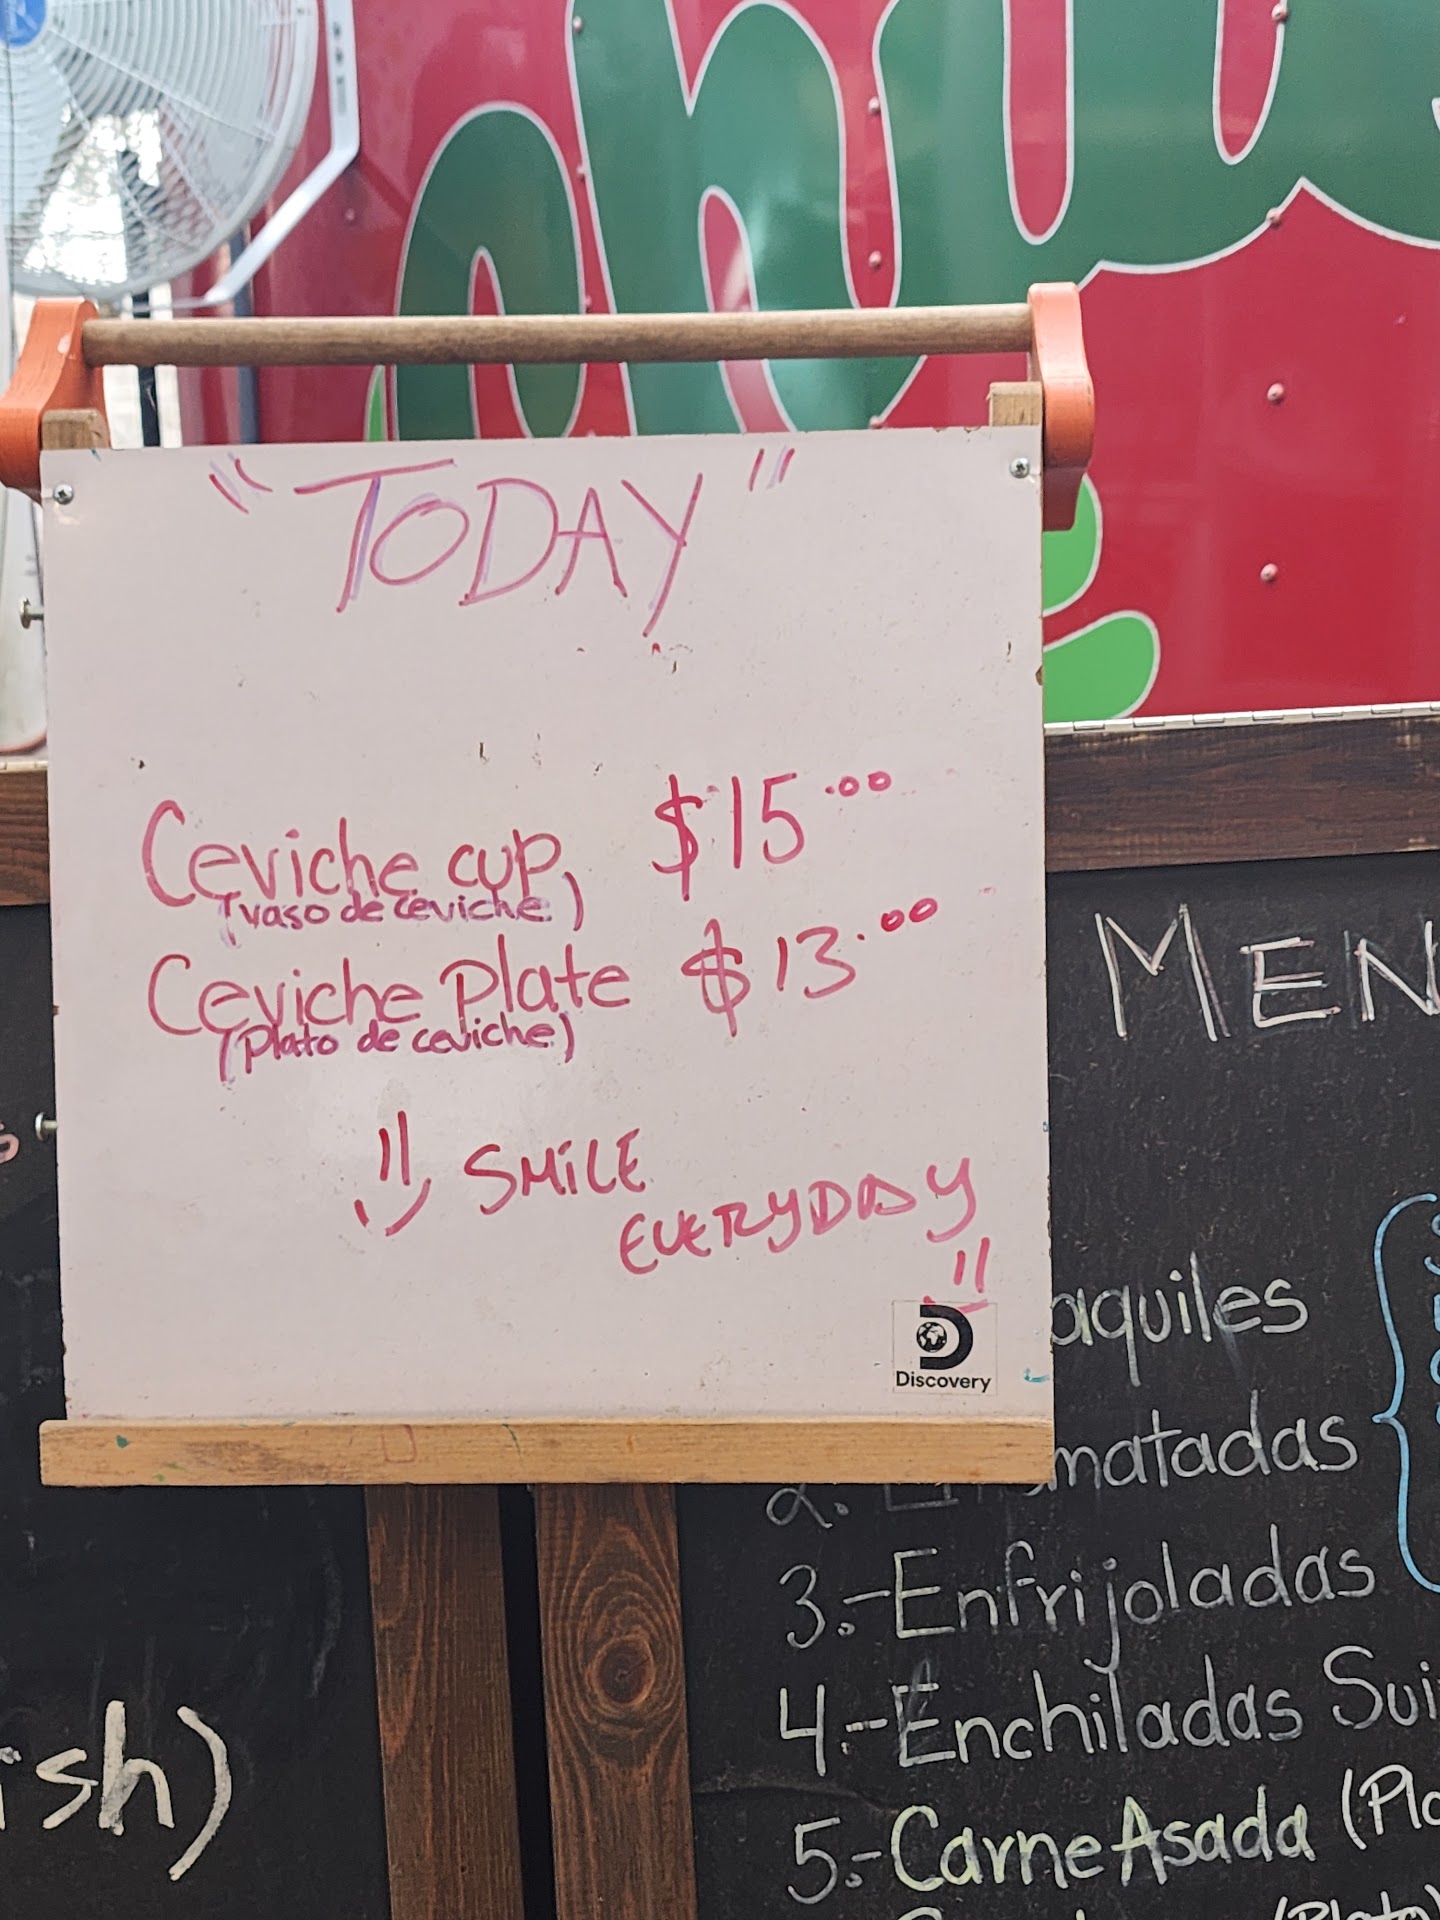 "TODAY"
Ceviche cup $15.00
(vaso de ceviche)
Ceviche Plate $13.00
(Plato de ceviche)
SMiLE
EVERYDAY
Discovery
MEN
aquiles
2. matadas
3.-Enfrijoladas
4.-Enchiladas Sui
5.-Carne Asada (Pla
(Plato)
ish)